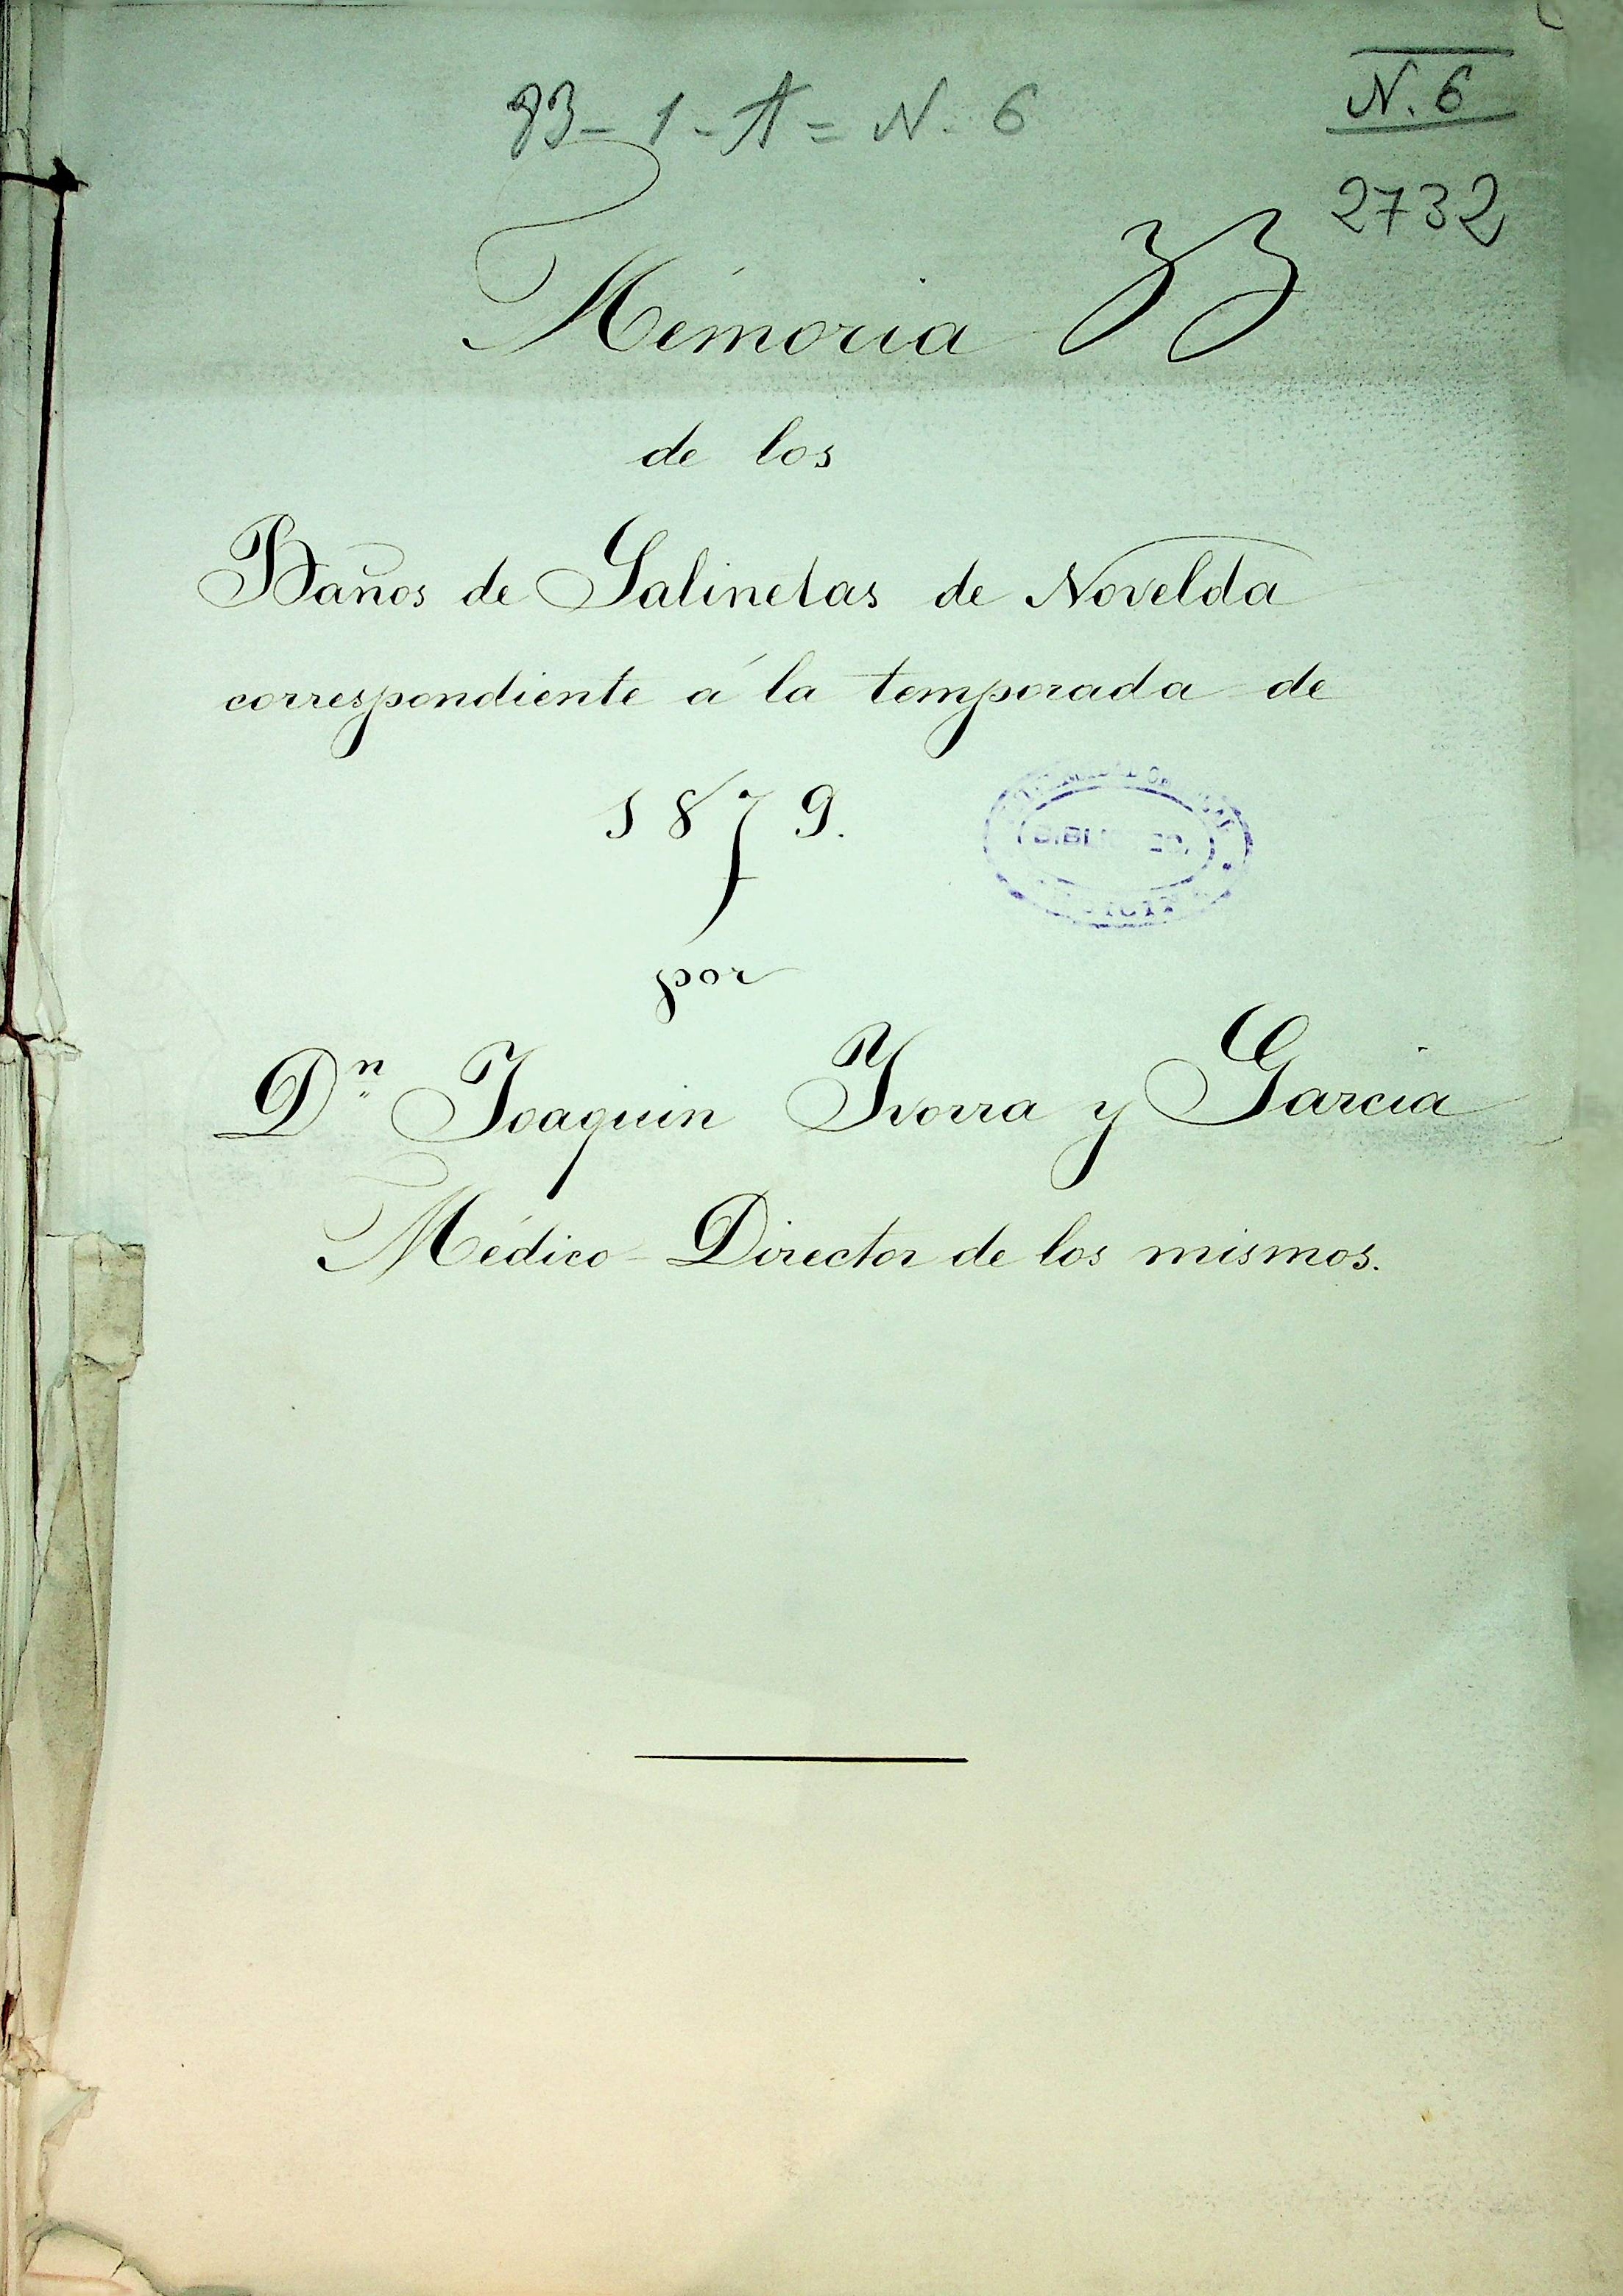 N. 6
93-1-A=N. 6
2732
Memoria 33
de los
Baños de Salinetas de Novelda
correspondiente á la temporada de
1879.
por
Dn Joaquin Ivorra y Garcia
Médico-Director de los mismos.